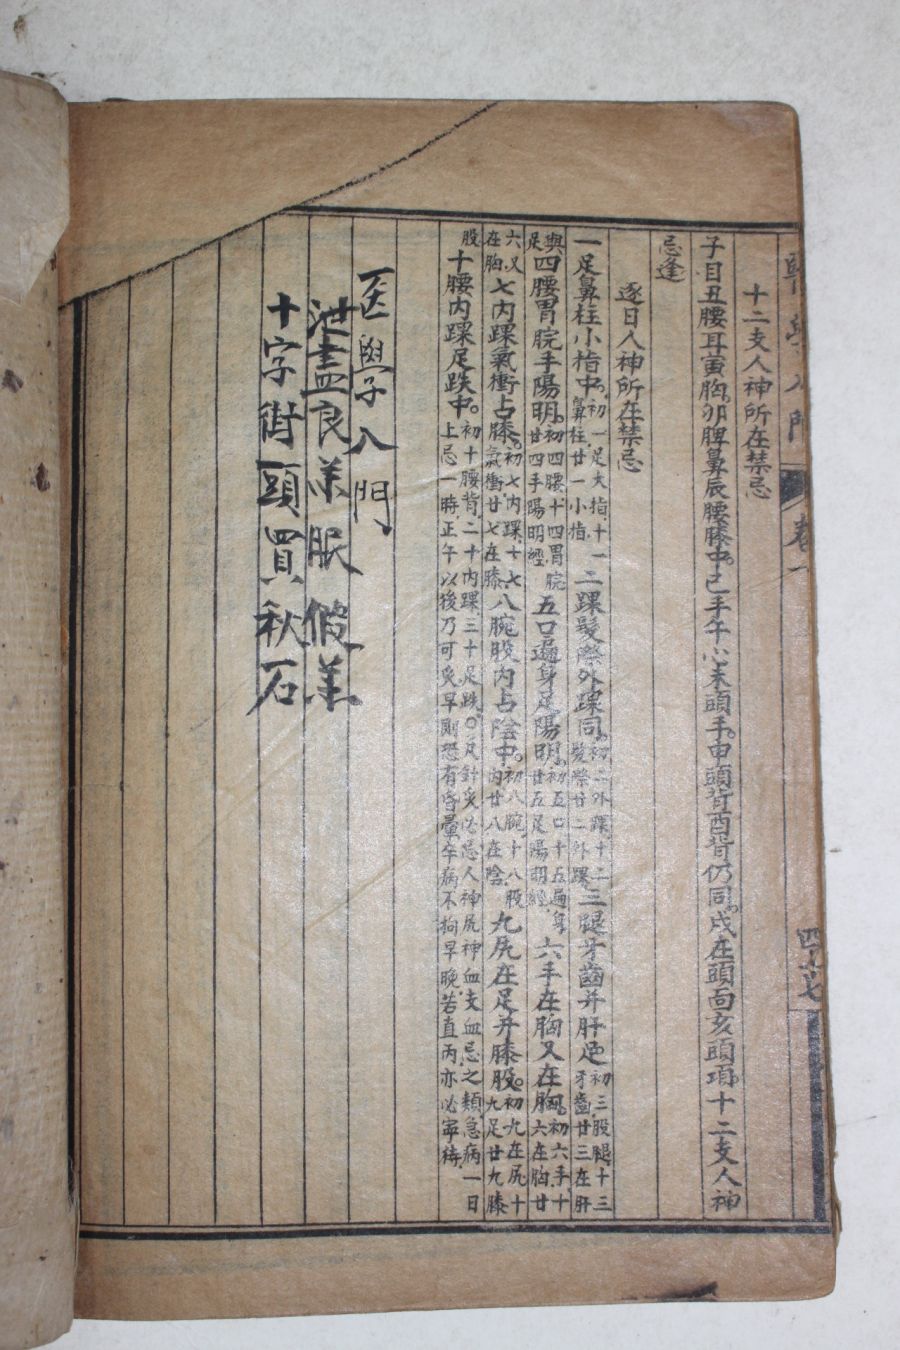 十二支人神所在禁忌
子目丑腰耳寅胸卯脾鼻辰腰膝中巳手午心未頭手申頭背酉背仍同戌在頭面亥頭項十二支人神
忌逢
逐日人神所在禁忌
一足鼻柱小指中初一足大指十一鼻柱廿一小指二踝髮際外踝同初二外踝十二髮際廿二外踝三腿牙齒并肝足初三股腿十三牙齒廿三在肝
與足四腰胃脘手陽明初四腰十四胃脘廿四手陽明經五口遍身足陽明初五口十五遍身廿五足陽明經六手在胸又在胸初六手十六在胸廿
六又在胸七內踝氣衝占膝初七內踝十七氣衝廿七在膝八腕股內占陰中初八腕十八股內廿八在陰九尻在足并膝股初九在尻十九足廿九膝
股十腰內踝足趺中初十腰背二十內踝三十足趺○凡針灸必忌人神尻神血支血忌之類急病一日上忌一時正午以後乃可灸早則恐有昏暈卒病不拘早晚若直丙亦必寧待
医學入門
泄盡良羊眼假羊
十字街頭買秋石
卷一